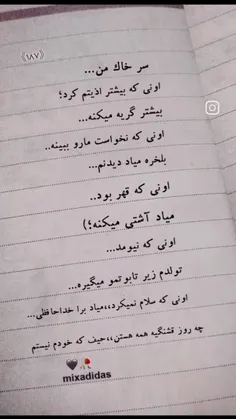 《۱۸۷》
سر خاك من...
اونی که بیشتر اذیتم کرد؛
بیشتر گریه میکنه...
اونی که نخواست مارو ببینه..
بلخره میاد دیدنم...
اونی که قهر بود..
میاد آشتی میکنه؛)
اونی که نیومد..
تولدم زیر تابوتمو میگیره...
اونی که سلام نمیکرد،،میاد برا خداحافظی...
چه روز قشنگیه همه هستن،،حیف که خودم نیستم
mixadidas